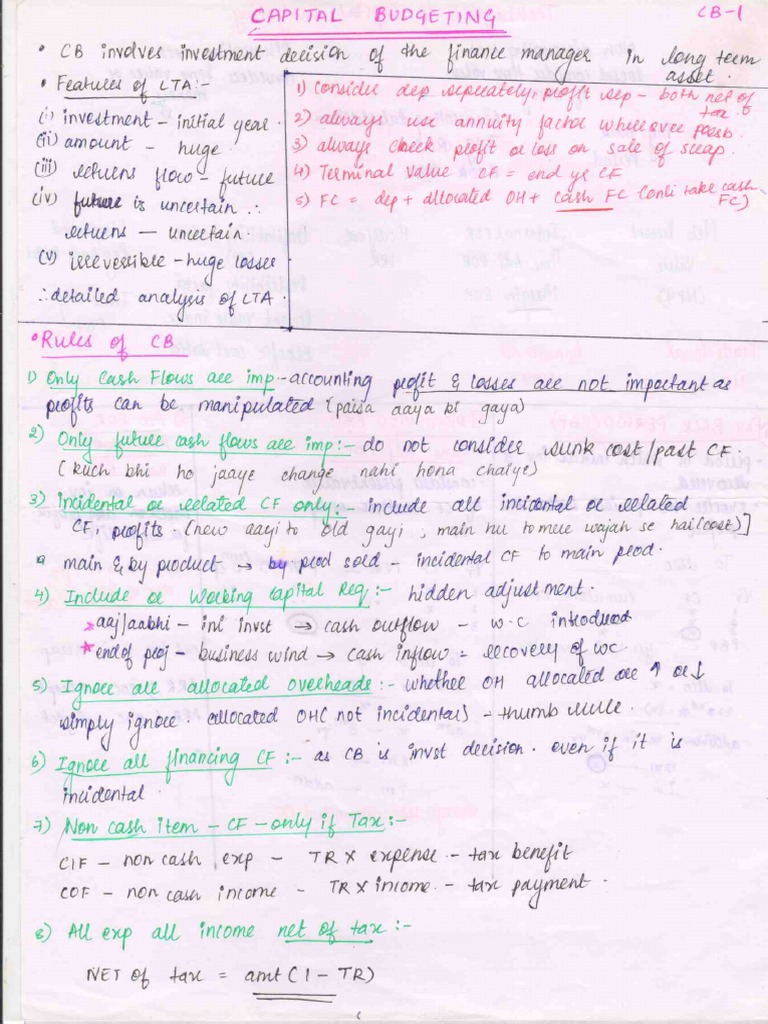 CAPITAL BUDGETING
CB-1
• CB involves investment decision of the finance manager in long term
asset.
• Features of LTA:-
(i) investment - initial year.
(ii) amount - huge.
(iii) returns flow - future
(iv) future is uncertain ∴
returns — uncertain
(v) irreversible - huge losses
∴ detailed analysis of LTA.
1) Consider dep seperately, profit sep - both net of
tax.
2) always use annuity factor wherever possb
3) always check profit or loss on sale of scrap.
4) Terminal value CF = end yr CF
5) FC = dep + allocated OH + cash FC (onli take cash
FC)
• Rules of CB
1) Only Cash Flows are imp - accounting profit & losses are not important as
profits can be manipulated (paisa aaya ki gaya)
2) Only future cash flows are imp:- do not consider sunk cost/past CF.
(kuch bhi ho jaaye change nahi hona chaiye)
3) incidental or related CF only:- include all incidental or related
CF, profits. (new aayi to old gayi, main hu to mere wajah se hai(cost)]
main & by product → by prod sold - incidental CF to main prod.
4) Include or Working capital Req:- hidden adjustment.
* aaj/aabhi - ini invst → cash outflow - w.c introduced
* end of proj - business wind → cash inflow = recovery of wc
5) Ignore all allocated overheads:- whether OH allocated are ↑ or ↓
simply ignore. allocated OH (not incidental) - thumb rule.
6) Ignore all financing CF:- as CB is invst decision. even if it is
incidental.
7) Non cash item - CF - only if Tax:-
CIF - non cash exp - TR X expense - tax benefit
COF - non cash income - TR X income - tax payment.
8) All exp all income net of tax:-
NET of tax = amt (1 - TR)